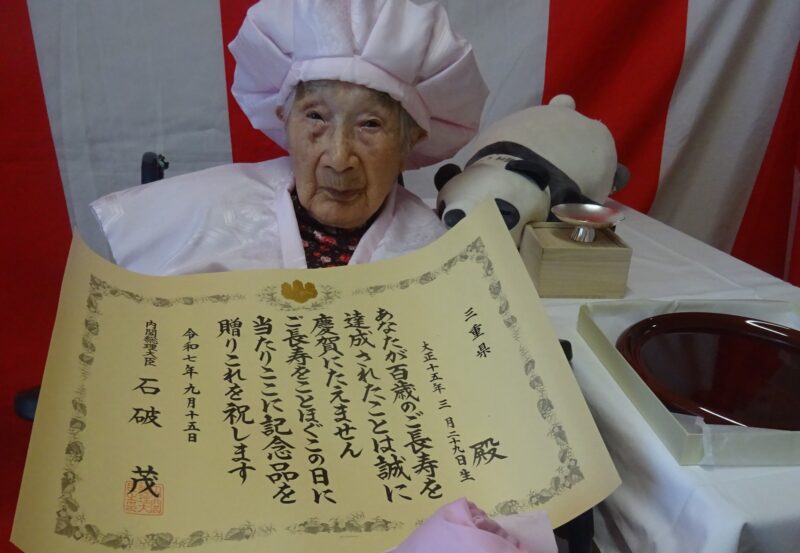 三重県
殿
大正十五年 三 月二十九日生
あなたが百歳のご長寿を
達成されたことは誠に
慶賀にたえません
ご長寿をことほぎこの日に
当たりここに記念品を
贈りこれを祝します
令和七年九月十五日
内閣総理大臣 石破 茂